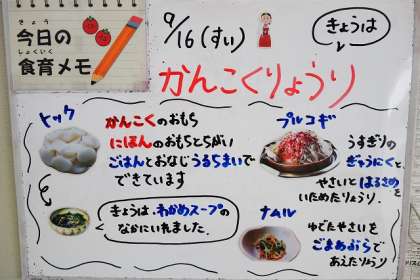 きょう
今日の
しょくいく
食育メモ
9/16(すい)
きょうは
かんこくりょうり
トック
かんこくのおもち
にほんのおもちとちがい
ごはんとおなじうるうちまいで
できています
きょうは、わかめスープの
なかにいれました。
プルコギ
うすぎりの
ぎゅうにくと、
やさいとはるさめを
いためたりょうり。
ナムル
ゆでたやさいを
ごまあぶらで
あえたりょうり